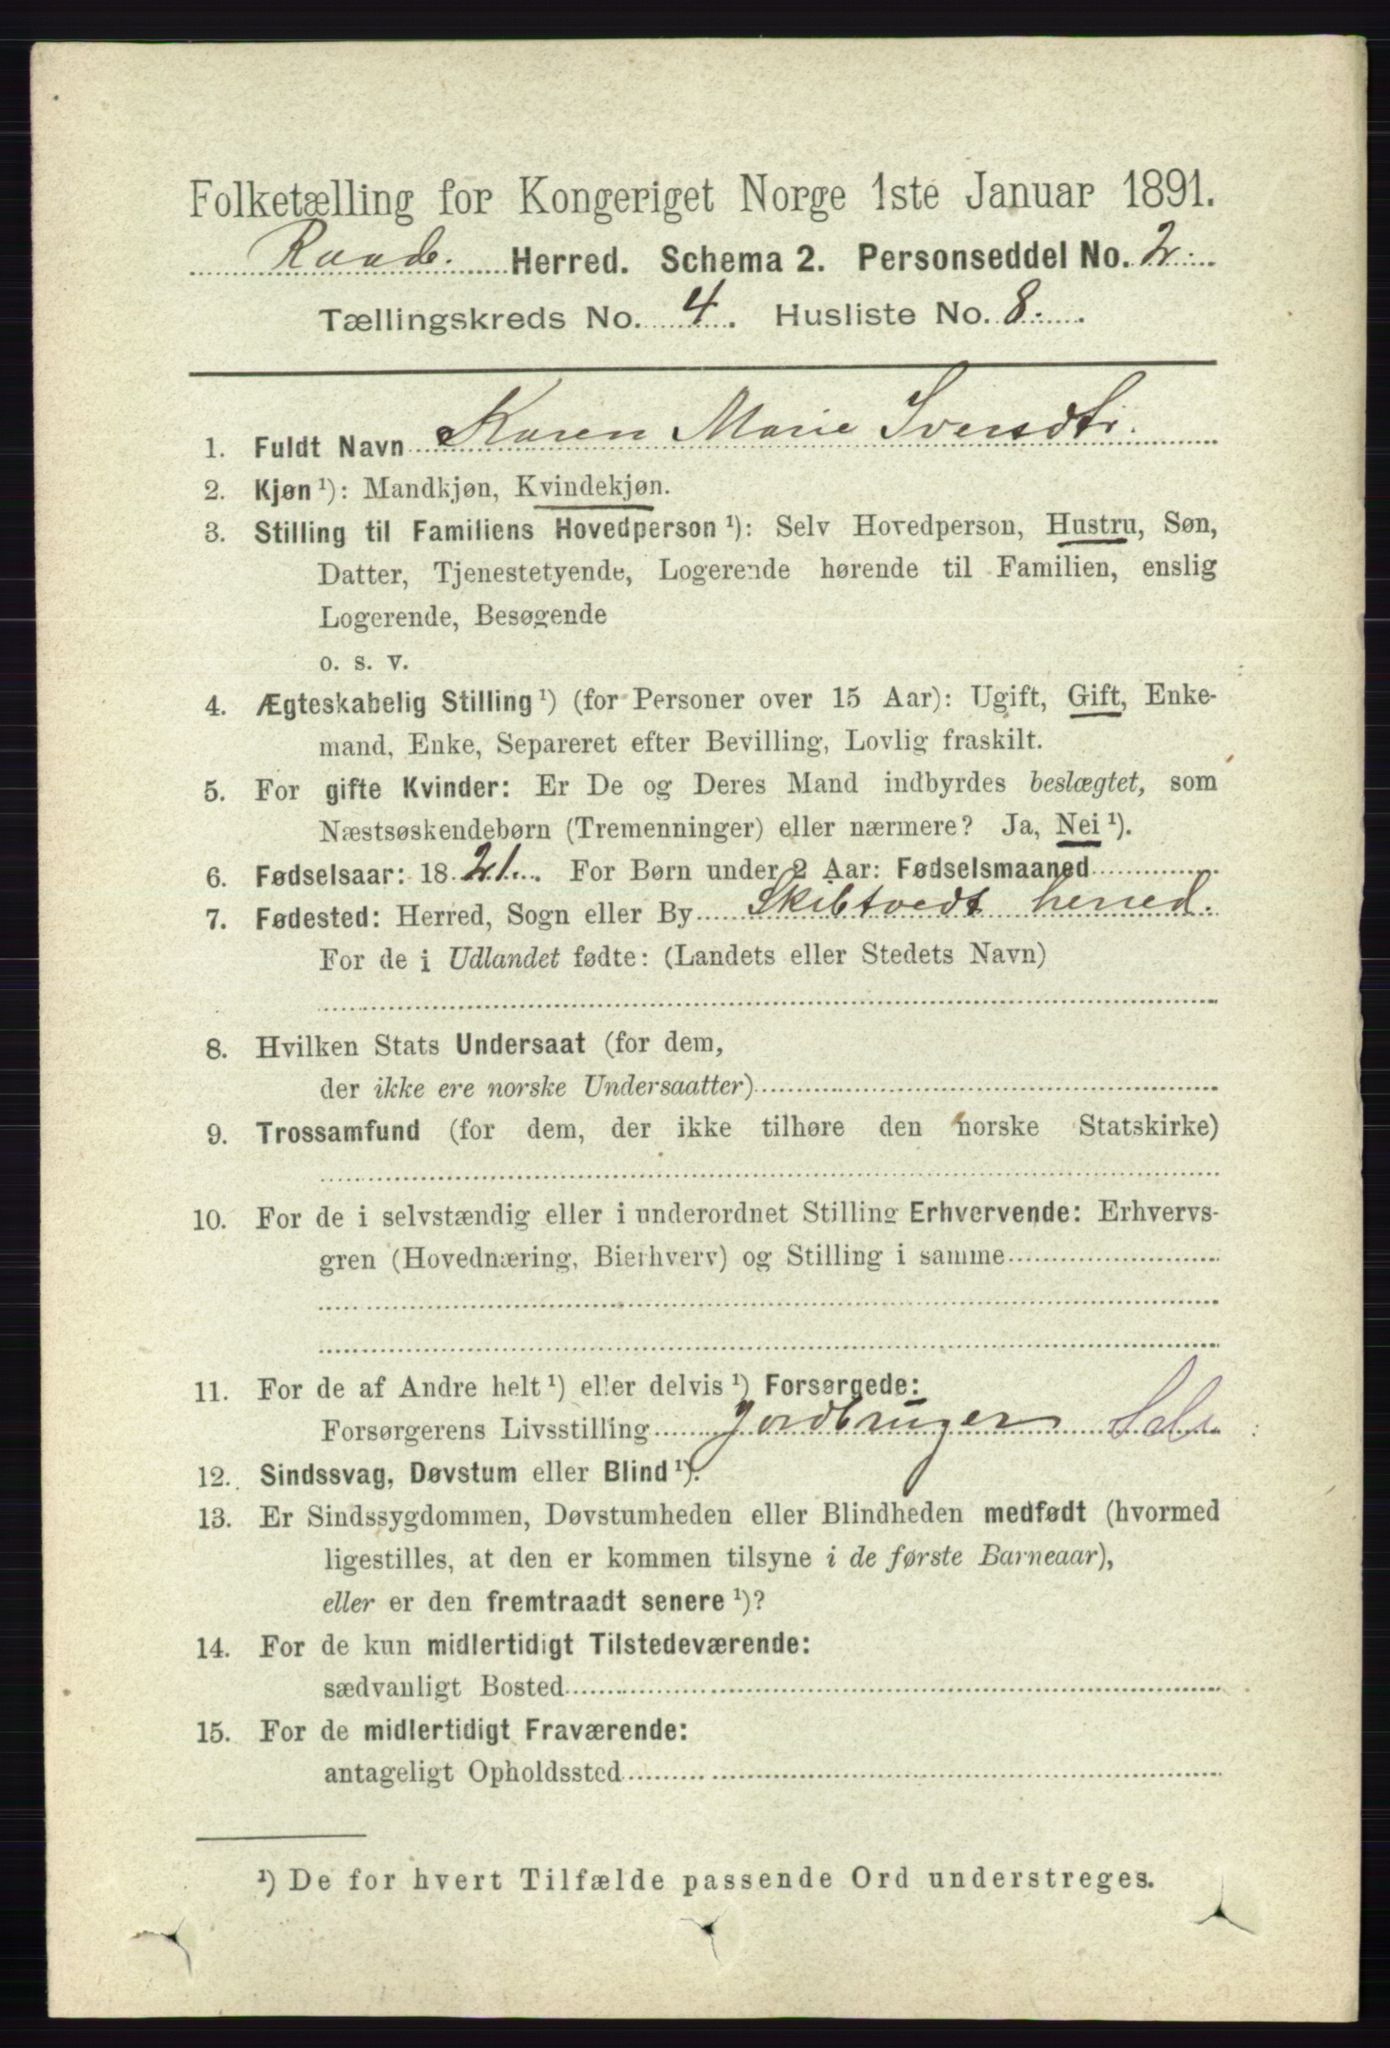 Folketælling for Kongeriget Norge 1ste Januar 1891.
Raade. Herred. Schema 2. Personseddel No. 2.
Tællingskreds No. 4. Husliste No. 8.
1. Fuldt Navn Karen Marie Iversdtr.
2. Kjøn ¹): Mandkjøn, Kvindekjøn.
3. Stilling til Familiens Hovedperson ¹): Selv Hovedperson, Hustru, Søn,
Datter, Tjenestetyende, Logerende hørende til Familien, enslig
Logerende, Besøgende
o. s. v.
4. Ægteskabelig Stilling ¹) (for Personer over 15 Aar): Ugift, Gift, Enke-
mand, Enke, Separeret efter Bevilling, Lovlig fraskilt.
5. For gifte Kvinder: Er De og Deres Mand indbyrdes beslægtet, som
Næstsøskendebørn (Tremenninger) eller nærmere? Ja, Nei ¹).
6. Fødselsaar: 1821. For Børn under 2 Aar: Fødselsmaaned
7. Fødested: Herred, Sogn eller By Skibtvedt herred.
For de i Udlandet fødte: (Landets eller Stedets Navn)
8. Hvilken Stats Undersaat (for dem,
der ikke ere norske Undersaatter)
9. Trossamfund (for dem, der ikke tilhøre den norske Statskirke)
10. For de i selvstændig eller i underordnet Stilling Erhvervende: Erhvervs-
gren (Hovednæring, Bierhverv) og Stilling i samme
11. For de af Andre helt ¹) eller delvis ¹) Forsørgede:
Forsørgerens Livsstilling Jordbruger
12. Sindssvag, Døvstum eller Blind ¹).
13. Er Sindssygdommen, Døvstumheden eller Blindheden medfødt (hvormed
ligestilles, at den er kommen tilsyne i de første Barneaar),
eller er den fremtraadt senere ¹)?
14. For de kun midlertidigt Tilstedeværende:
sædvanligt Bosted
15. For de midlertidigt Fraværende:
antageligt Opholdssted
¹) De for hvert Tilfælde passende Ord understreges.